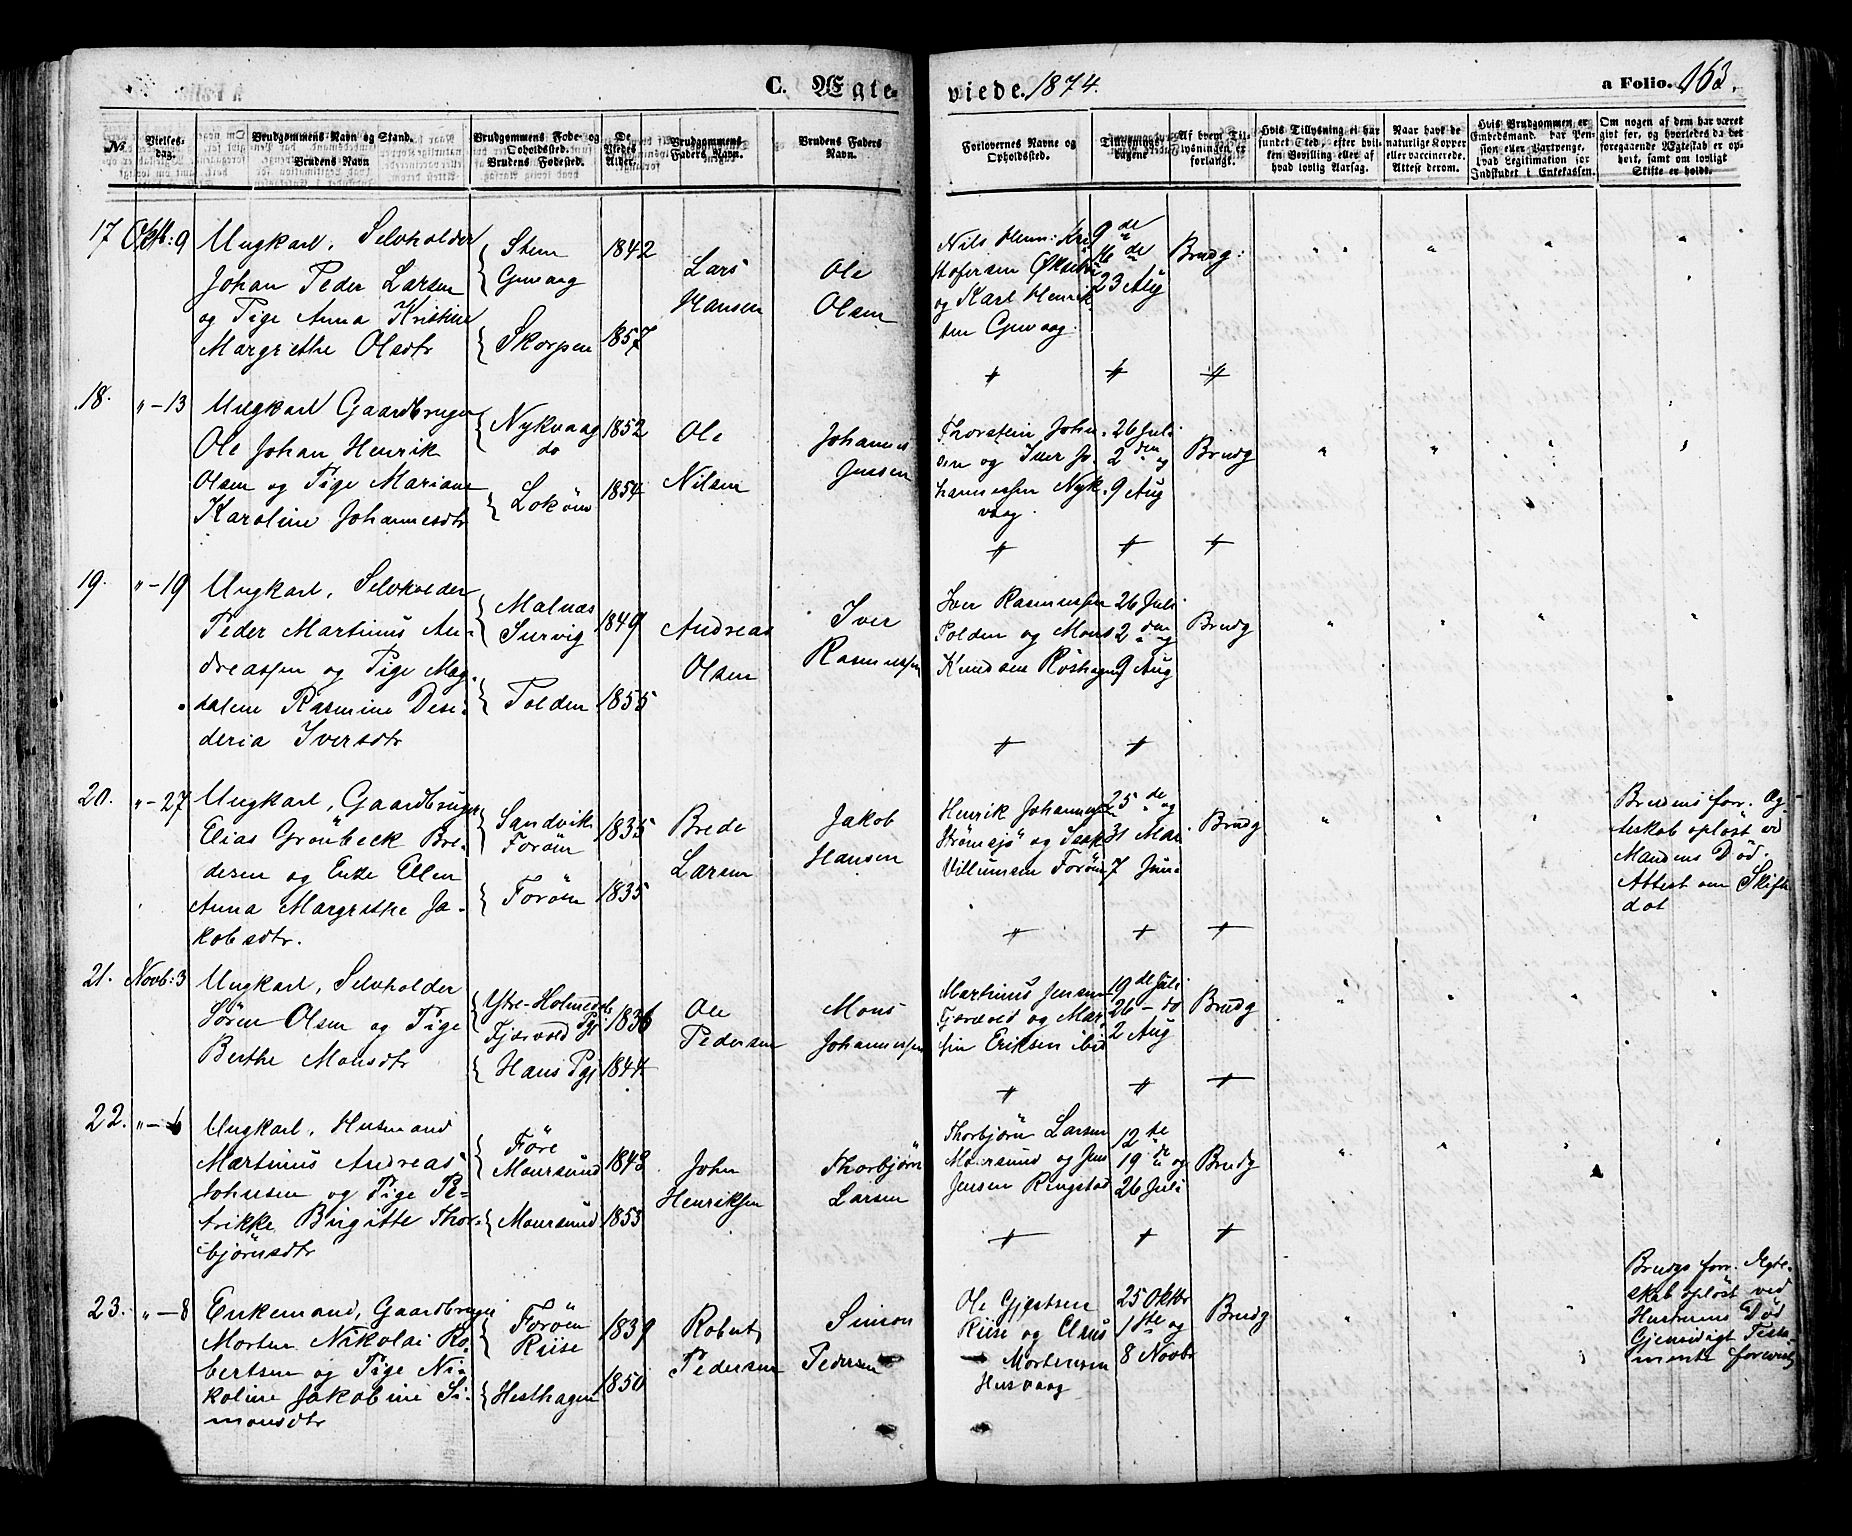 C. Ægte-
viede. 1874.
a Folio. 163.
No.
Vielses-
dag.
Brudgommens Navn og Stand.
Brudens Navn
Brudgommens Føde- og
Opholdssted.
Brudens Fødested.
De
Viedes
Alder.
Brudgommens
Faders Navn.
Brudens Faders
Navn.
Forlovernes Navne og
Opholdssted.
Tillysnings-
dagene
Af hvem Til-
lysningen er
forlangt.
Hvis Tillysning ei har
fundet Sted, efter hvil-
ken Bevilling eller af
hvad lovlig Aarsag.
Naar havt de
naturlige Kopper
eller vaccinerede.
Attest derom.
Hvis Brudgommen er
Embedsmand, har Pen-
sion eller Vartpenge,
hvad Legitimation for
Indskudet i Enkekassen.
Om nogen af dem har været
gift før, og hvorledes da det
foregaaende Ægteskab er op-
hørt, samt om lovligt
Skifte er holdt.
17 Oktb: 9
Ungkarl, Selvholder
Johan Peder Larsen
og Pige Anna Kristine
Margrethe Olsdtr
Stene
Skorpen
1842
1857
Lars
Hansen
Ole
Olsen
Nils Henr: Kri
stofersen
og Karl Henrik
sen
9de
16de
23 Aug
Brudg:
18. " - 13
Ungkarl Gaardbruger
Ole Johan Henrik
Olsen og Pige Mariane
Karoline Johannesdtr
Nykvaag
do
Lokøen
1852
1854
Ole
Nilsen
Johannes
Jenssen
Thorstein John
sen og Iver Jo-
hannessen Nyk-
vaag
26 Juli
2den og
9 Aug
Brudg
19. " - 19
Ungkarl, Selvholder
Peder Martinus An-
dreassen og Pige Mag-
dalene Rasmine Dese-
deria Iversdtr
Malnæs
Survig
Polden
1849
1855
Andreas
Olsen
Iver
Rasmussen
Iver Rasmussen
Polden og Mons
Knudsen Røshagen
26 Juli
2den og
9 Aug
Brudg
20. " - 27
Ungkarl, Gaardbruger
Elias Grønbeck Bre-
desen og Enke Ellen
Anna Margrethe Ja-
kobsdtr.
Sandvik
Forøen
Forøen
1835
1835
Brede
Larsen
Jakob
Hansen
Henrik Johannessen
Strømsjø og Isak
Villumsen Forøen
25de og
31 Mai
7 Juni
Brudg
Brudens forr. Æg
teskab opløst ved
Mandens Død.
Attest om Skifte
dat
21. Novb: 3
Ungkarl, Selvholder
Søren Olsen og Pige
Berthe Monsdtr
Ytre-Holmedals
Fjærvold Pgj
Haus Pgj
1836
1844
Ole
Pedersen
Mons
Johannessen
Martinus Jensen
Fjærvold og Mar-
tin Eriksen ibid
19de Juli
26 - do
2 Aug
Brudg
22. " - 6
Ungkarl, Husmand
Martinus Andreas
Johnsen og Pige Pe-
trikke Birgitte Thor-
bjørnsdtr
Føre
Maursund
Maursund
1843
1853
John
Henriksen
Thorbjørn
Larsen
Thorbjørn Larsen
Maursund og Jens
Jensen Ringstad
12te
19de og
26 Juli
Brudg
23. " - 8
Enkemand, Gaardbruger
Morten Nikolai Ro-
bertsen og Pige Ni-
koline Jakobine Si-
monsdtr
Forøen
Riise
Hesthagen
1839
1850
Robert
Pedersen
Simon
Pedersen
Ole Gjertsen
Riise og Claus
Mortensen
Husvaag
25 Oktbr
1ste og
8 Novbr
Brudg
Brudgs forr. Ægte-
skab opløst ved
Hustruens Død
Gjensidigt Testa
mente forevist